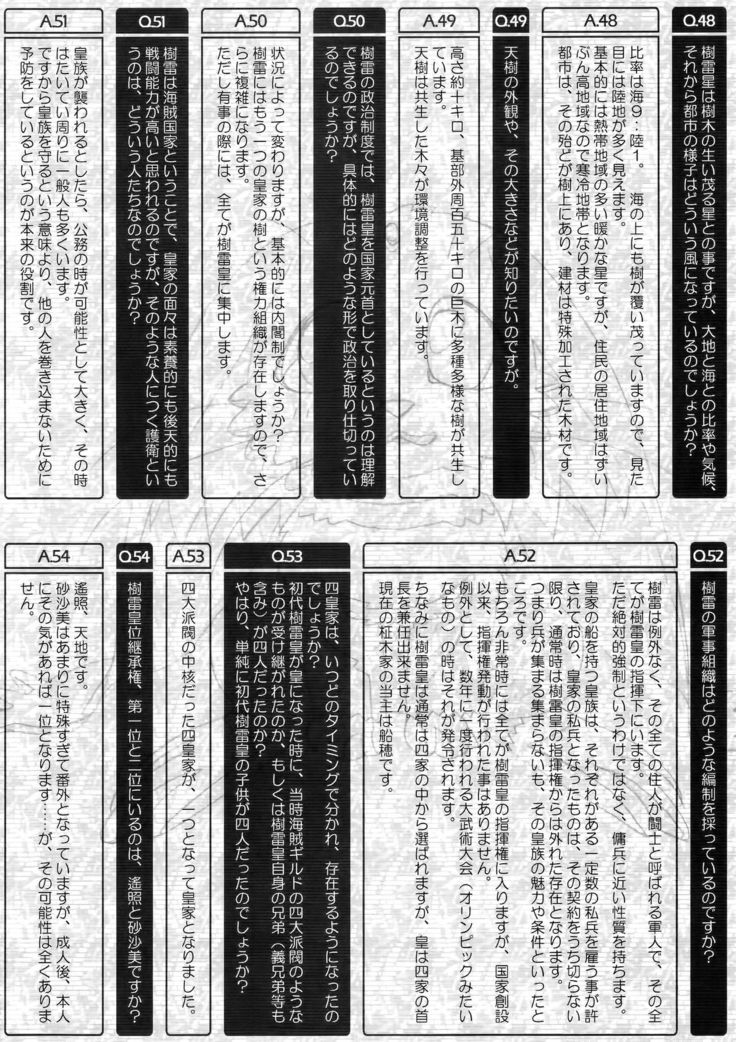 Q.48
樹雷星は樹木の生い茂る星との事ですが、大地と海との比率や気候、
それから都市の様子はどういう風になっているのでしょうか？
A.48
比率は海9：陸1。　海の上にも樹が覆い茂っていますので、見た
目には陸地が多く見えます。
基本的には熱帯地域の多い暖かな星ですが、住民の居住地域はずい
ぶん高地域なので寒冷地帯となります。
都市は、その殆どが樹上にあり、建材は特殊加工された木材です。
Q.49
天樹の外観や、その大きさなどが知りたいのですが。
A.49
高さ約十キロ、基部外周百五十キロの巨木に多種多様な樹が共生し
ています。
天樹は共生した木々が環境調整を行っています。
Q.50
樹雷の政治制度では、樹雷皇を国家元首としているというのは理解
できるのですが、具体的にはどのような形で政治を取り仕切ってい
るのでしょうか？
A.50
状況によって変わりますが、基本的には内閣制でしょうか？
樹雷にはもう一つの皇家の樹という権力組織が存在しますので、さ
らに複雑になります。
ただし有事の際には、全てが樹雷皇に集中します。
Q.51
樹雷は海賊国家ということで、皇家の面々は素養的にも後天的にも
戦闘能力が高いと思われるのですが、そのような人につく護衛とい
うのは、どういう人たちなのでしょうか？
A.51
皇族が襲われるとしたら、公務の時が可能性として大きく、その時
はたいてい周りに一般人も多くいます。
ですから皇族を守るという意味より、他の人を巻き込まないために
予防をしているというのが本来の役割です。
Q.52
樹雷の軍事組織はどのような編制を採っているのですか？
A.52
樹雷は例外なく、その全ての住人が闘士と呼ばれる軍人で、その全
てが樹雷皇の指揮下にいます。
ただ絶対的強制というわけではなく、傭兵に近い性質を持ちます。
皇家の船を持つ皇族は、それぞれがある一定数の私兵を雇う事が許
されており、皇家の私兵となったものは、その契約をうち切らない
限り、通常時は樹雷皇の指揮権からは外れた存在となります。
つまり兵が集まる集まらないも、その皇族の魅力や条件といったと
ころです。
もちろん非常時には全てが樹雷皇の指揮権に入りますが、国家創設
以来、指揮権発動が行われた事はありません。
例外として、数年に一度行われる大武術大会（オリンピックみたい
なもの）の時はそれが発令されます。
ちなみに樹雷皇は通常は四家の中から選ばれますが、皇は四家の首
長を兼任出来ません。
現在の柾木家の当主は船穂です。
Q.53
四皇家は、いつどのタイミングで分かれ、存在するようになったの
でしょうか？
初代樹雷皇が皇になった時に、当時海賊ギルドの四大派閥のような
ものが受け継がれたのか、もしくは樹雷皇自身の兄弟（義兄弟等も
含み）が四人だったのか？
やはり、単純に初代樹雷皇の子供が四人だったのでしょうか？
A.53
四大派閥の中核だった四皇家が、一つとなって皇家となりました。
Q.54
樹雷皇位継承権、第一位と二位にいるのは、遙照と砂沙美ですか？
A.54
遙照、天地です。
砂沙美はあまりに特殊すぎて番外となっていますが、成人後、本人
にその気があれば一位となります……が、その可能性は全くありま
せん。